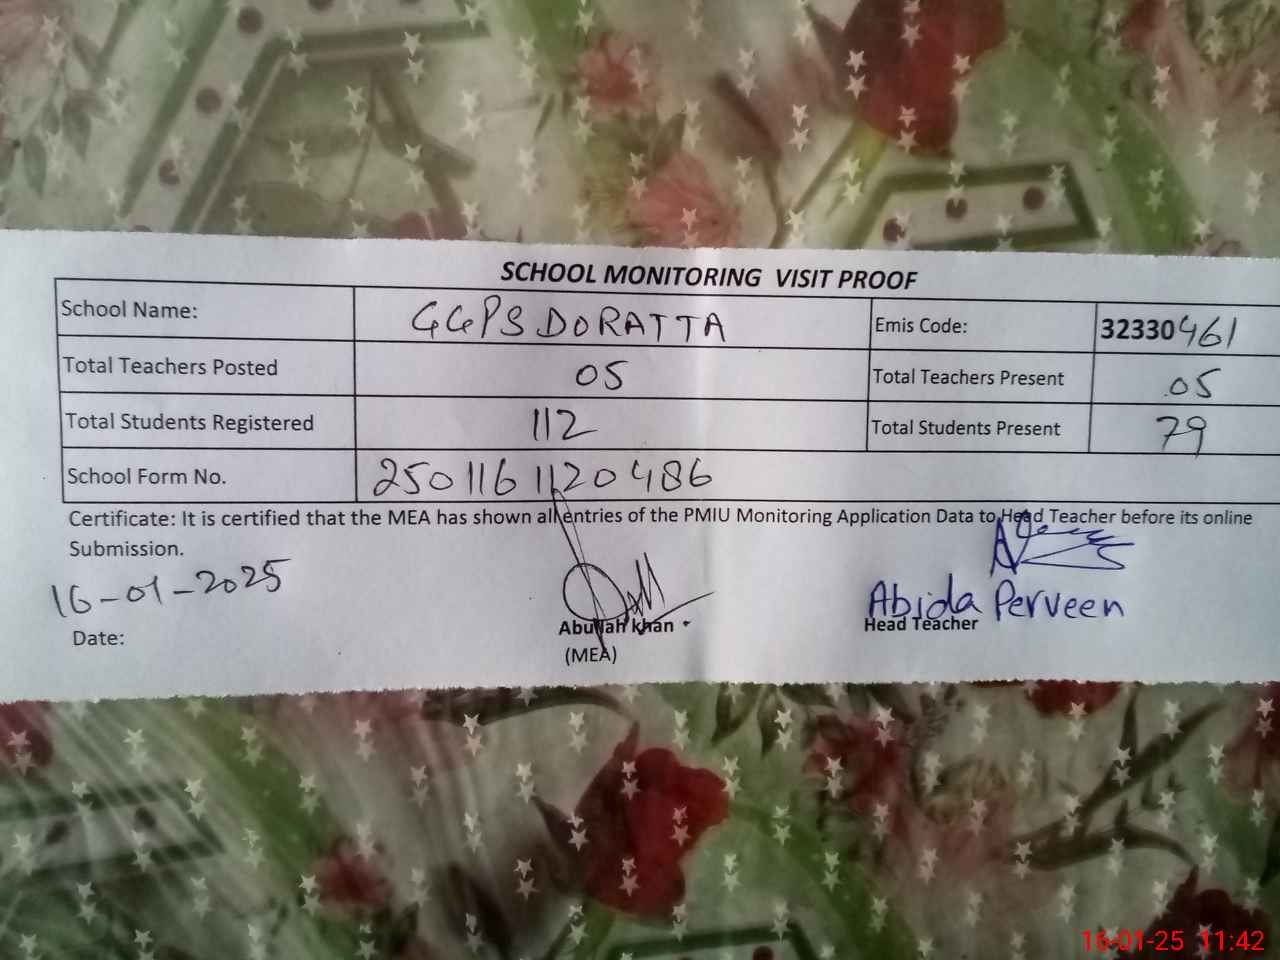 SCHOOL MONITORING VISIT PROOF
School Name: GGPS DORATTA Emis Code: 32330461
Total Teachers Posted 05 Total Teachers Present 05
Total Students Registered 112 Total Students Present 79
School Form No. 2501161120486
Certificate: It is certified that the MEA has shown all entries of the PMIU Monitoring Application Data to Head Teacher before its online
Submission.
16-01-2025
Abullah khan
Abida Perveen
Head Teacher
Date:
(MEA)
16-01-25 11:42